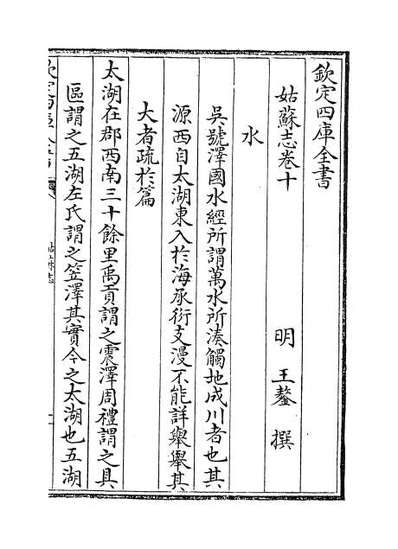 欽定四庫全書
姑蘇志卷十
明 王鏊 撰
水
吳號澤國水經所謂萬水所湊觸地成川者也其
源西自太湖東入於海承衍支漫不能詳舉舉其
大者疏於篇
太湖在郡西南三十餘里禹貢謂之震澤周禮謂之具
區謂之五湖左氏謂之笠澤其實今之太湖也五湖
欽定四庫全書
姑蘇志